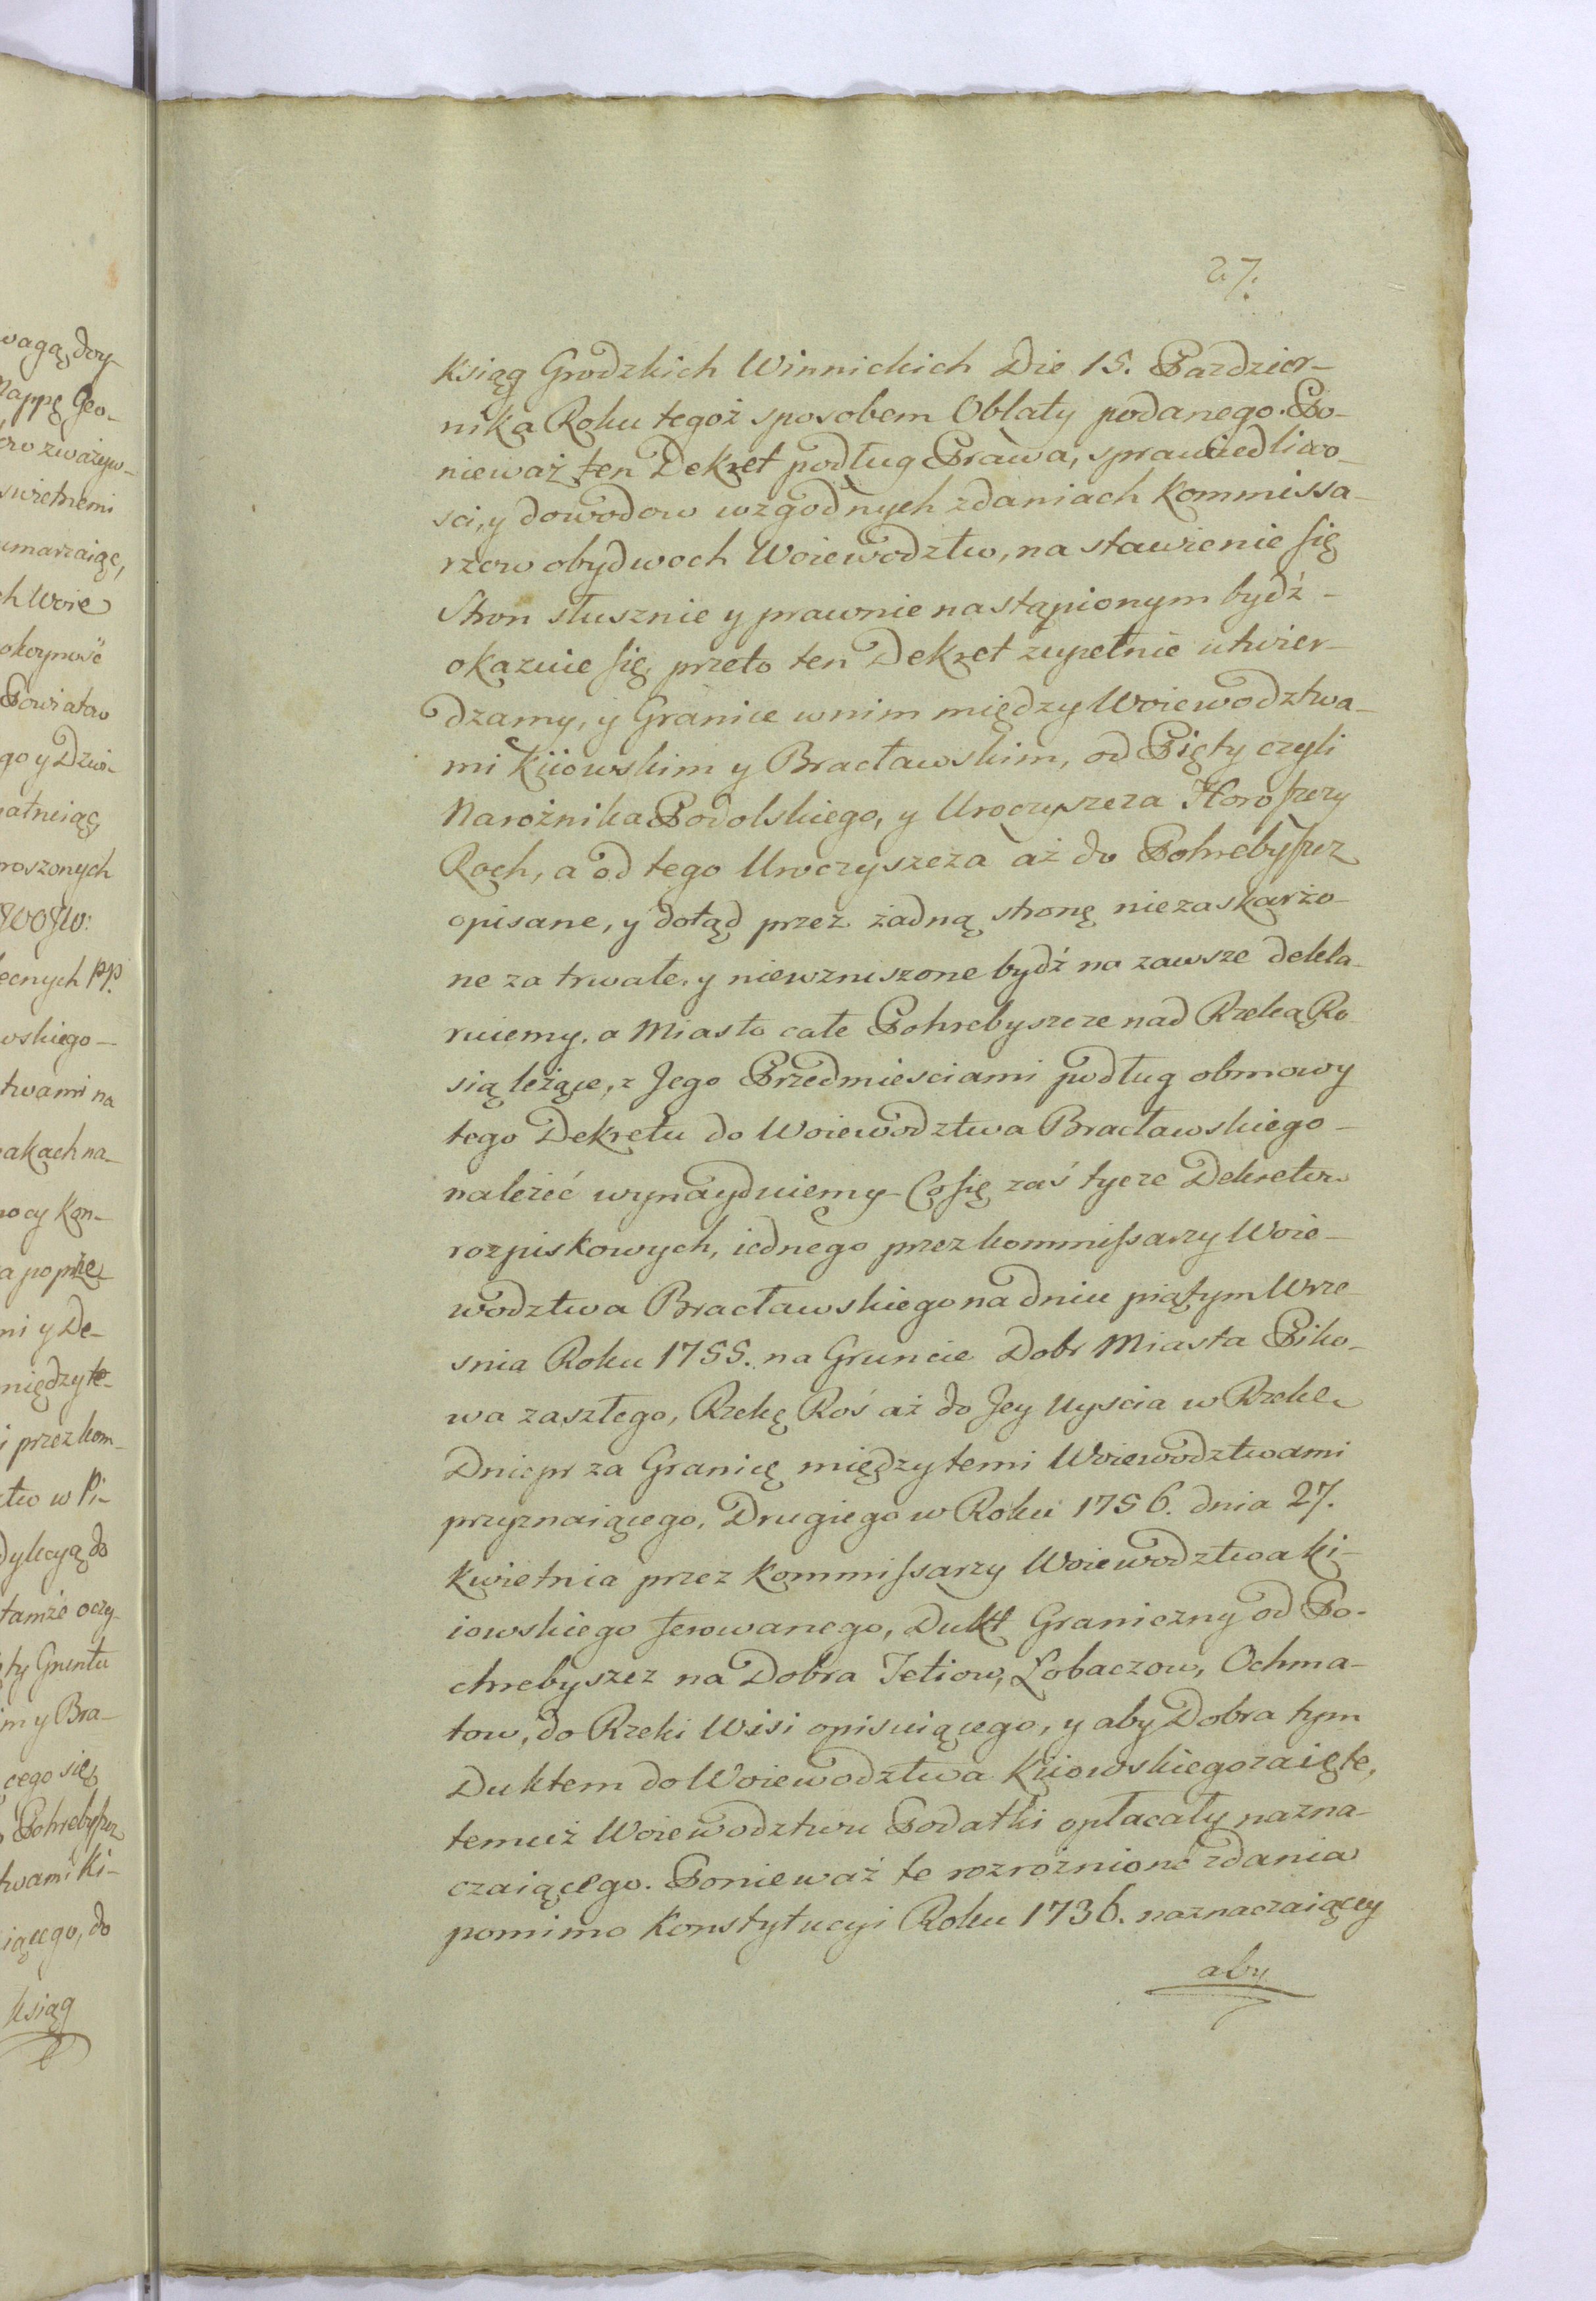 27.
Ksiąg Grodzkich Winnickich Die 15. Pazdzier-
nika Roku tegoż sposobem Oblaty podanego. Po-
nieważ ten Dekret podług Prawa, sprawiedliwo-
sci, y dowodow wzgodnych zdaniach Kommissa-
rzow obydwoch Woiewodztw, na stawienie się
Stron słusznie y prawnie nastąpionym bydź -
okazuie się, przeto ten Dekret zupełnie utwier-
dzamy, y Granice wnim między Woiewodztwa-
mi Kiiowskim y Bracławskim, od Pięty czyli
Narożnika Podolskiego, y Uroczyszcza Horoszczy
Roch, a od tego Uroczyszcza aż do Pohrebyszcz
opisane, y dotąd przez żadną stronę niezaskarżo-
ne za trwałe, y niewzruszone bydź na zawsze dekla-
ruiemy. a Miasto całe Pohrebyszcze nad Rzeką Ro-
sią leżące, z Jego Przedmiesciami podług obmowy
tego Dekretu do Woiewodztwa Bracławskiego -
należeć wynayduiemy - Co się zaś tycze Dekretow
rozpiskowych, iednego przez kommissarzy Woie-
wodztwa Bracławskiego na dniu piątym Wrze-
snia Roku 1755. na Gruncie Dobr Miasta Piko-
wa zaszłego, Rzekę Roś aż do Jey Uyscia w Rzekę
Dniepr za Granicę między temi Woiewodztwami
przyznaiącego, Drugiego w Roku 1756. dnia 27.
Kwietnia przez Kommissarzy Woiewodztwa Ki-
iowskiego ferowanego, Dukt Graniczny od Po-
chrebyszcz na Dobra Tetiow, Łobaczow, Ochma-
tow, do Rzeki Wisi opisuiącego, y aby Dobra tym
Duktem do Woiewodztwa Kiiowskiego zaięte,
temuż Woiewodztwu Podatki opłacały nazna-
czaiącego. Ponieważ te rozrożnione zdania
pomimo Konstytucyi Roku 1736. naznaczaiącey
aby